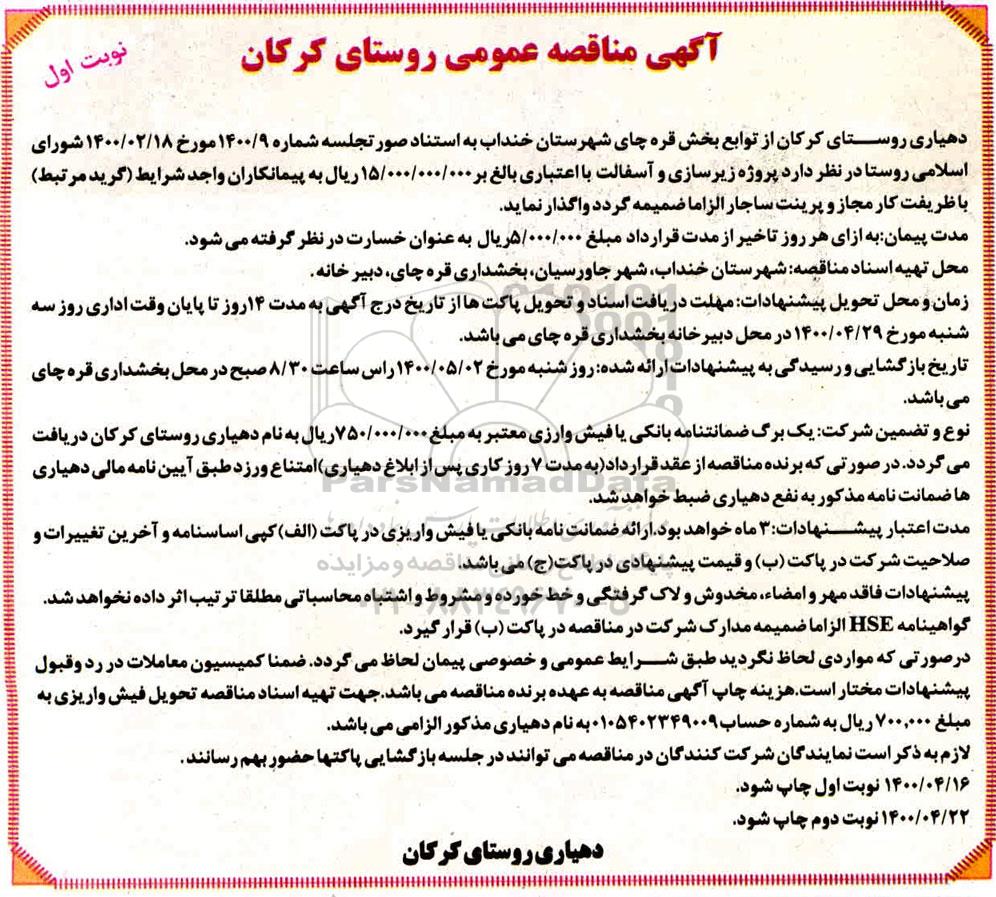 آگهی مناقصه عمومی روستای کرکان
نوبت اول
دهیاری روستای کرکان از توابع بخش قره چای شهرستان خنداب به استناد صورتجلسه شماره ۱۴۰۰/۹ مورخ ۱۴۰۰/۰۲/۱۸ شورای
اسلامی روستا در نظر دارد پروژه زیرسازی و آسفالت با اعتباری بالغ بر ۱۵/۰۰۰/۰۰۰/۰۰۰ ریال به پیمانکاران واجد شرایط (گرید مرتبط)
با ظریفت کار مجاز و پرینت ساجار الزاما ضمیمه گردد واگذار نماید.
مدت پیمان:به ازای هر روز تاخیر از مدت قرارداد مبلغ ۵/۰۰۰/۰۰۰ریال به عنوان خسارت در نظر گرفته می شود.
محل تهیه اسناد مناقصه: شهرستان خنداب، شهر جاورسیان، بخشداری قره چای، دبیر خانه.
زمان و محل تحویل پیشنهادات: مهلت دریافت اسناد و تحویل پاکت ها از تاریخ درج آگهی به مدت ۱۴روز تا پایان وقت اداری روز سه
شنبه مورخ ۱۴۰۰/۰۴/۲۹ در محل دبیر خانه بخشداری قره چای می باشد.
تاریخ بازگشایی و رسیدگی به پیشنهادات ارائه شده: روز شنبه مورخ ۱۴۰۰/۰۵/۰۲ راس ساعت ۸/۳۰ صبح در محل بخشداری قره چای
می باشد.
نوع و تضمین شرکت: یک برگ ضمانتنامه بانکی یا فیش وارزی معتبر به مبلغ ۷۵۰/۰۰۰/۰۰۰ریال به نام دهیاری روستای کرکان دریافت
می گردد. در صورتی که برنده مناقصه از عقد قرارداد(به مدت ۷ روز کاری پس از ابلاغ دهیاری)امتناع ورزد طبق آیین نامه مالی دهیاری
ها ضمانت نامه مذکور به نفع دهیاری ضبط خواهد شد.
مدت اعتبار پیشنهادات: ۳ ماه خواهد بود.ارائه ضمانت نامه بانکی یا فیش واریزی در پاکت (الف)کپی اساسنامه و آخرین تغییرات و
صلاحیت شرکت در پاکت (ب) و قیمت پیشنهادی در پاکت(ج) می باشد.
پیشنهادات فاقد مهر و امضاء، مخدوش و لاک گرفتگی و خط خورده و مشروط و اشتباه محاسباتی مطلقا ترتیب اثر داده نخواهد شد.
گواهینامه HSE الزاما ضمیمه مدارک شرکت در مناقصه در پاکت (ب) قرار گیرد.
درصورتی که مواردی لحاظ نگردید طبق شرایط عمومی و خصوصی پیمان لحاظ می گردد. ضمنا کمیسیون معاملات در رد وقبول
پیشنهادات مختار است.هزینه چاپ آگهی مناقصه به عهده برنده مناقصه می باشد.جهت تهیه اسناد مناقصه تحویل فیش واریزی به
مبلغ ۷۰۰,۰۰۰ ریال به شماره حساب ۰۱۰۵۴۰۲۳۴۹۰۰۹ به نام دهیاری مذکور الزامی می باشد.
لازم به ذکر است نمایندگان شرکت کنندگان در مناقصه می توانند در جلسه بازگشایی پاکتها حضور بهم رسانند.
۱۴۰۰/۰۴/۱۶ نوبت اول چاپ شود.
۱۴۰۰/۰۴/۲۲ نوبت دوم چاپ شود.
دهیاری روستای کرکان
ParsNamadData